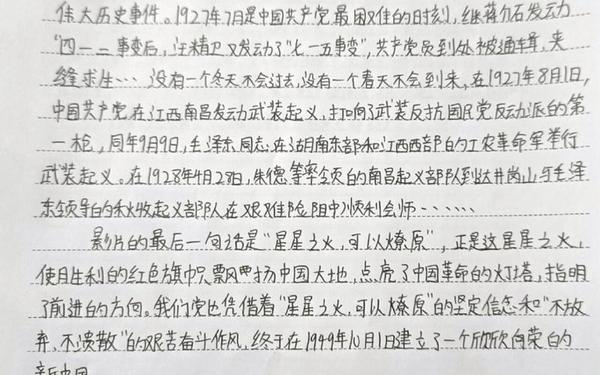 伟大历史事件。1927年7月是中国共产党最困难的时刻,继蒋介石发动
"四一二事变后,汪精卫又发动了"七一五事变",共产党员到处被通缉,夹
缝求生… 没有一个冬天不会过去,没有一个春天不会到来,在1927年8月1日,
中国共产党在江西南昌发动武装起义,打响了武装反抗国民党反动派的第
一枪,同年9月9日,毛泽东同志在湖南东部和江西西部的工农革命军举行
武装起义。在1928年4月28日,朱德等率领的南昌起义部队到达井岗山与毛泽
东领导的秋收起义部队在艰难险阻中顺利会师……
影片的最后一句话是"星星之火,可以燎原",正是这星星之火,
使胜利的红色旗帜飘扬中国大地,点亮了中国革命的灯塔,指明
了前进的方向。我们党也凭借着"星星之火,可以燎原"的坚定信念和"不放
弃、不溃散"的艰苦奋斗作风,终于在1949年10月1日建立了一个欣欣向荣的
新中国